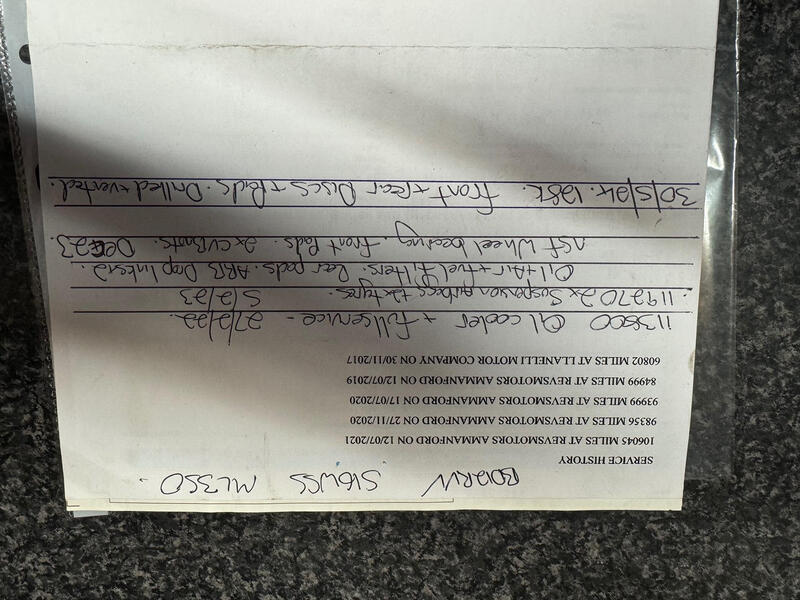 S16WSS ML350.
SERVICE HISTORY
106045 MILES AT REVSMOTORS AMMANFORD ON 12/07/2021
98356 MILES AT REVSMOTORS AMMANFORD ON 27/11/2020
93999 MILES AT REVSMOTORS AMMANFORD ON 17/07/2020
84999 MILES AT REVSMOTORS AMMANFORD ON 12/07/2019
60802 MILES AT LLANELLI MOTOR COMPANY ON 30/11/2017
113800 Oil cooler + full service - 27/2/22.
119270 2x Suspension airbags + 4x tyres. 5/2/23
Oil + Air + fuel filters. Rear pads. ARB Drop links x2
NSF wheel bearing. Front Pads. 2x CV Boots. Dec 23.
30/5/24. 128k. Front + rear Discs + Pads. Drilled + vented.